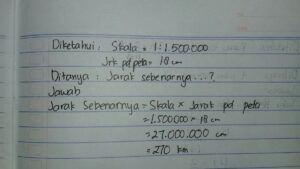 Diketahui : Skala = 1:1.500.000
Jrk pd peta = 18 cm
Ditanya : Jarak sebenarnya...?
Jawab
Jarak Sebenarnya = Skala × Jarak pd peta
= 1.500.000 × 18
= 27.000.000 cm
= 270 km